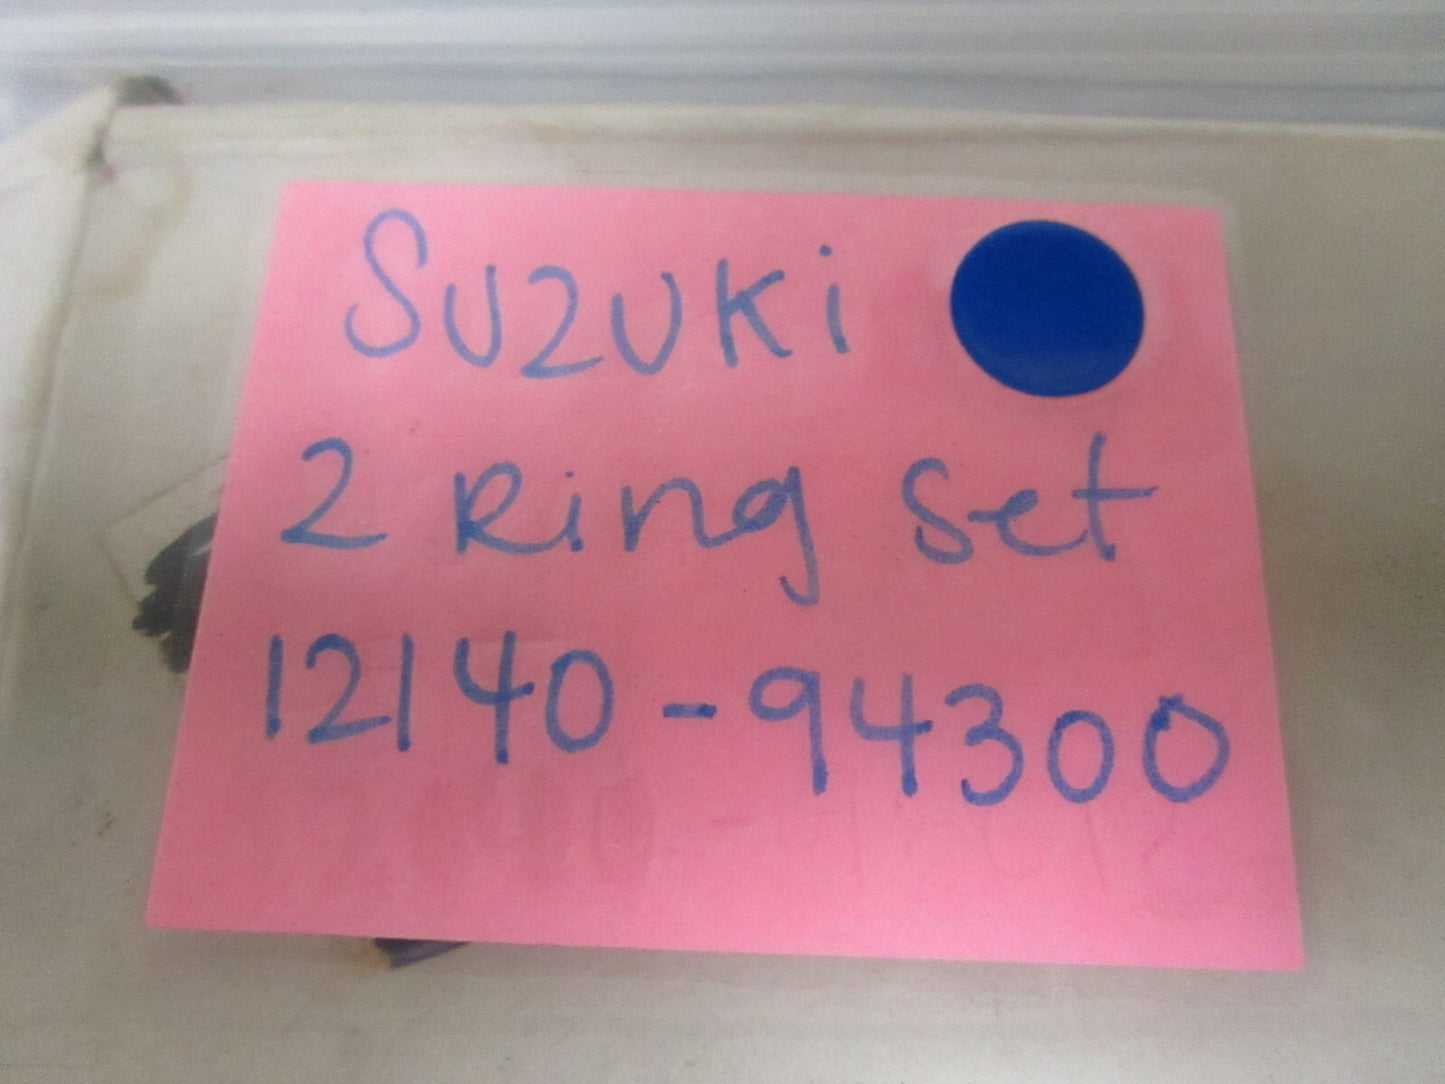 Suzuki
2 Ring Set
12140-94300